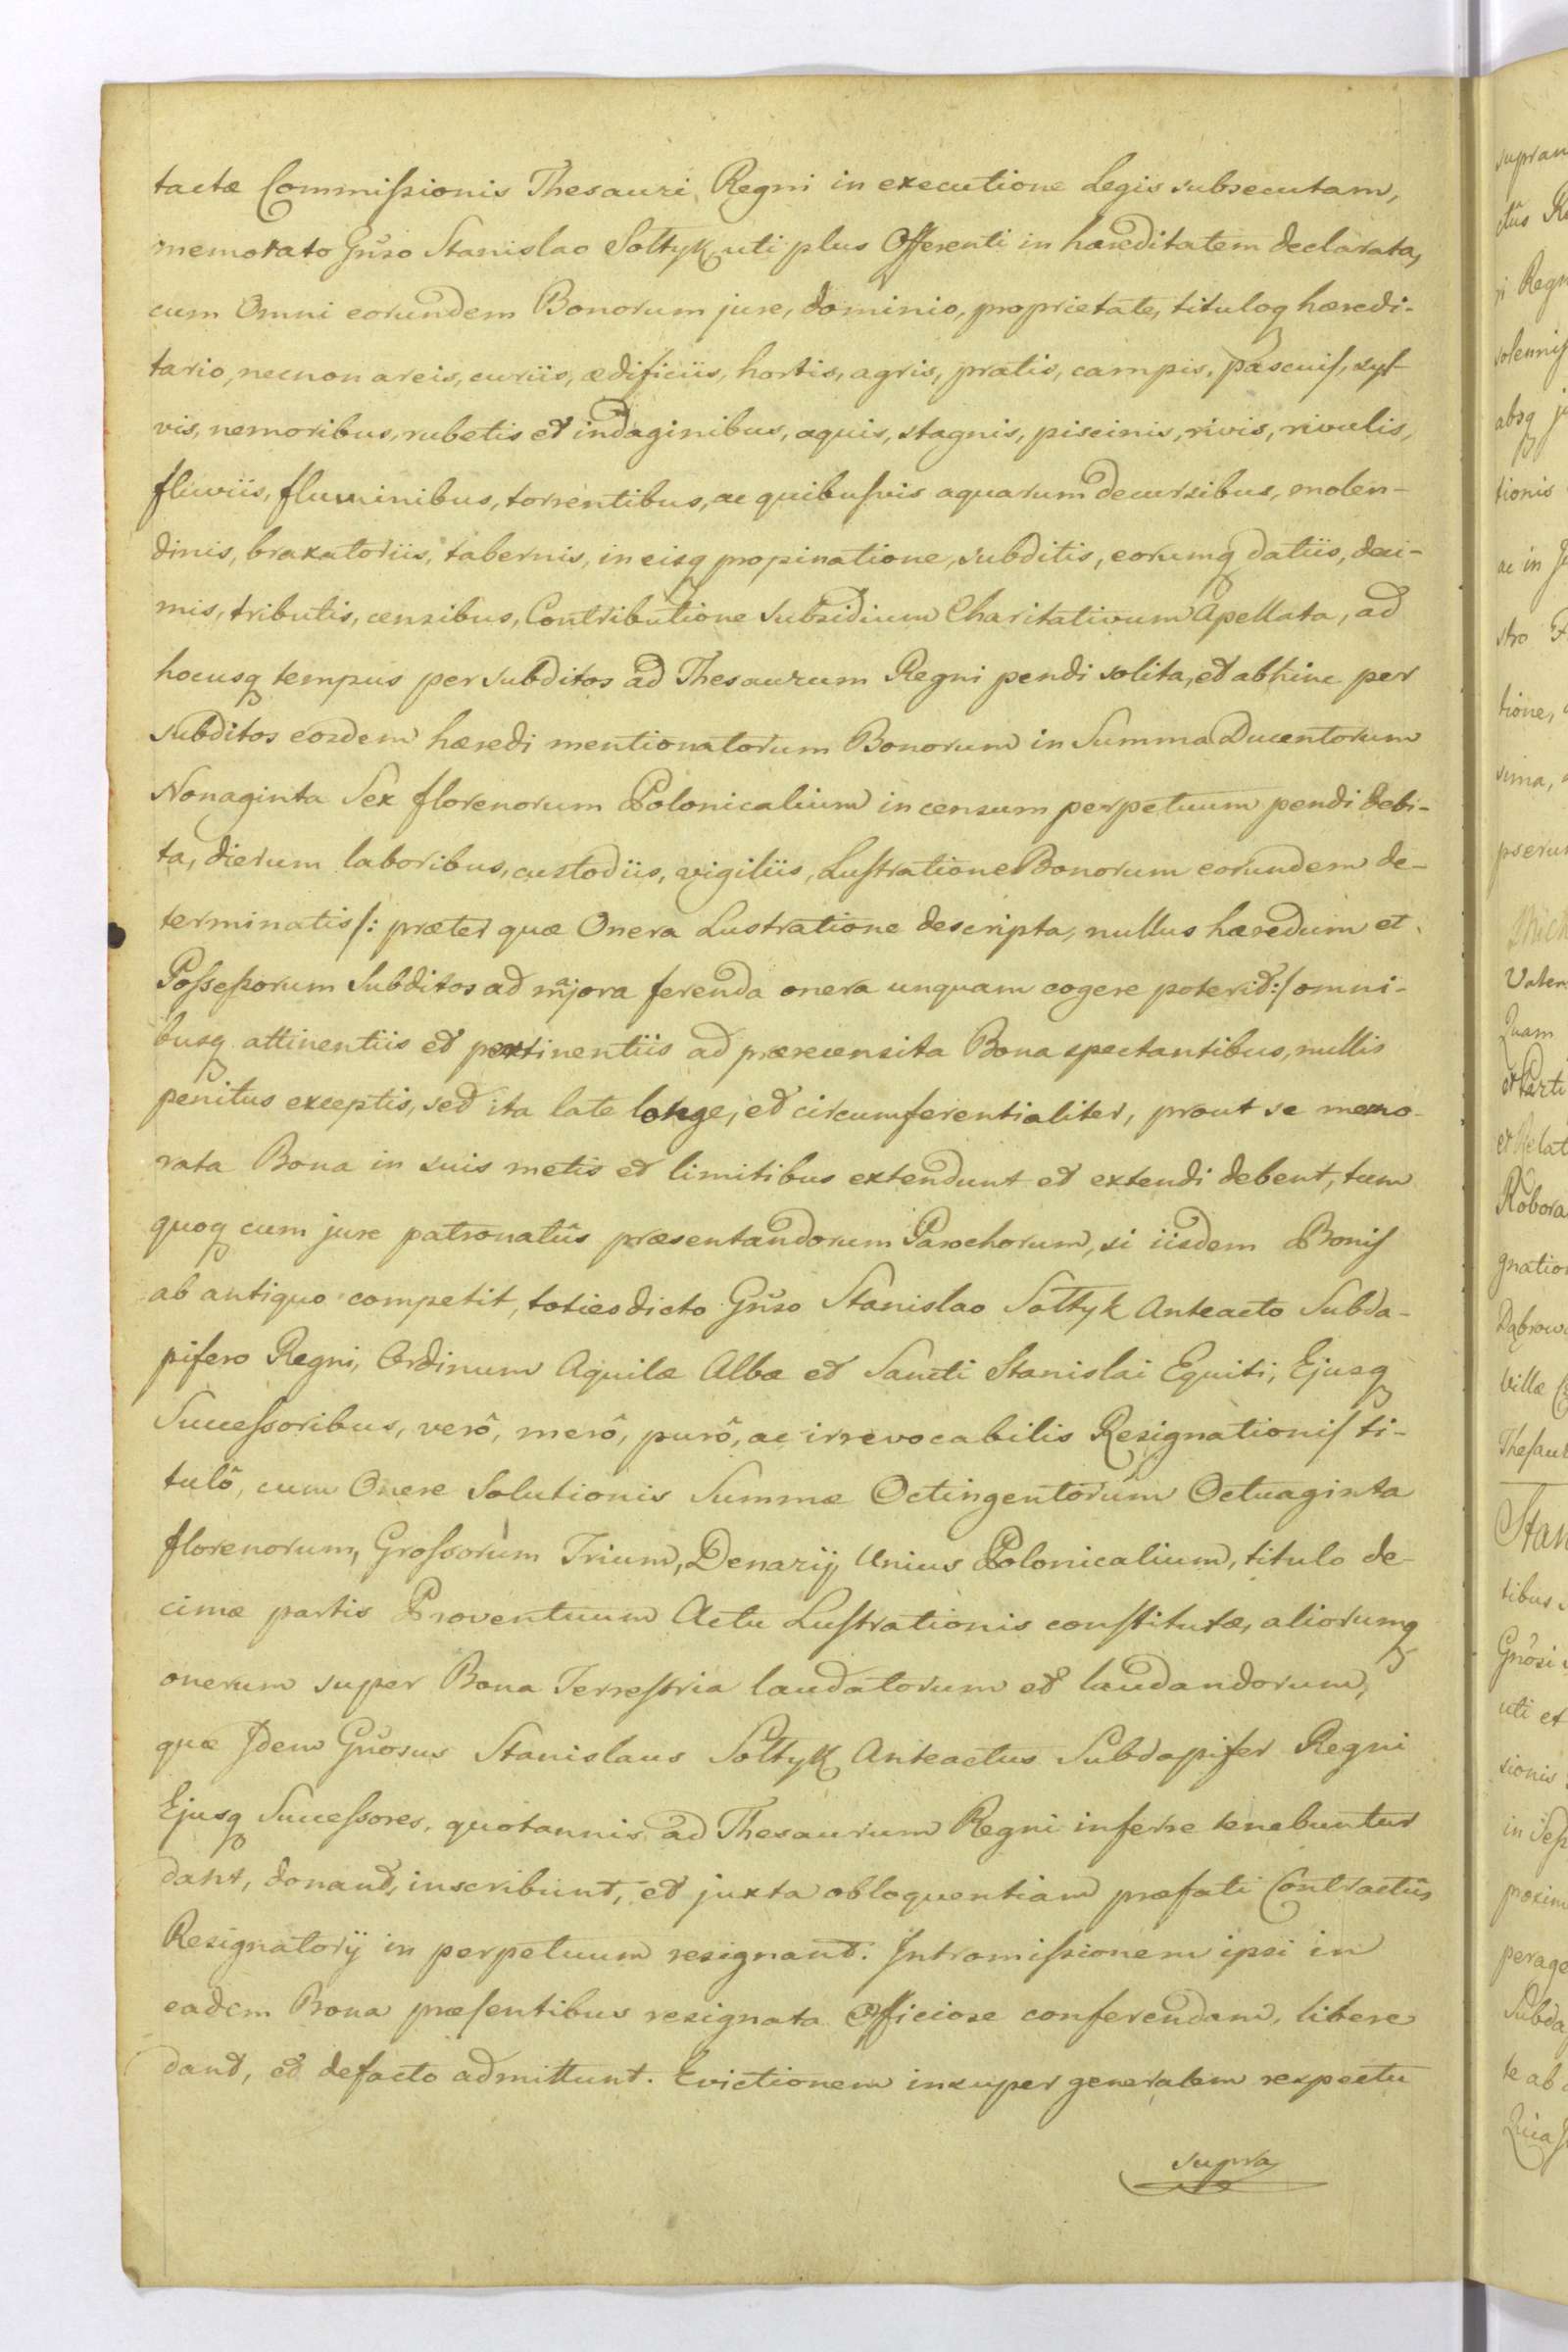 tactæ Commiſsionis Thesauri Regni in executione Legis subsecutam,
memorato Gn̄so Stanislao Sołtyk uti plus Offerenti in hæreditatem declarata,
cum Omni eorundem Bonorum jure, dominio, proprietate, tituloq hæredi-
tario, necnon areis, curiis, ædificiis, hortis, agris, pratis, campis, pascuiſ, syl-
vis, nemoribus, rubetis et indaginibus, aquis, stagnis, piscinis, rivis, rivulis,
fluviis, fluminibus, torrentibus, ac quibuſvis aquarum decursibus, molen-
dinis, braxatoriis, tabernis, in eisq propinatione, subditis, eorumq datiis, deci-
mis, tributis, censibus, Contributione Subsidium Charitativum Apellata, ad
hocusq tempus per subditos ad Thesaurum Regni pendi solita, et abhinc per
subditos eosdem hæredi mentionatorum Bonorum in Summa Ducentorum
Nonaginta Sex florenorum Polonicalium in censum perpetuum pendi debi-
ta, dierum laboribus, custodiis, vigiliis, Luſtratione Bonorum eorundem de-
terminatis /: præter quæ Onera Lustratione descripta, nullus hæredum et
Poſseſsorum Subditos ad majora ferenda onera unquam cogere poterit :/ omni-
busq attinentiis et pertinentiis ad præcensita Bona spectantibus, nullis
penitus exceptis, sed ita late longe, et circumferentialiter, prout se memo-
rata Bona in suis metis et limitibus extendunt et extendi debent, tum
quoq cum jure patronatûs præsentandorum Parochorum, si iisdem Boniſ
ab antiquo competit, totiesdicto Gn̄so Stanislao Sołtyk Anteacto Subda-
pifero Regni, Ordinum Aquilæ Albæ et Sancti Stanislai Equiti, Ejusq
Succeſsoribus, verô, merô, purô, ac irrevocabilis Resignationiſ ti-
tulô, cum Onere Solutionis Summæ Octingentorum Octuaginta
florenorum, Groſsorum Trium, Denarij Unius Polonicalium, titulo de-
cimæ partis Proventuum Actu Luſtrationis conſtitutæ, aliorumq
onerum super Bona Terreſtria laudatorum et laudandorum,
quæ Idem Gn̄osus Stanislaus Sołtyk Anteactus Subdapifer Regni
Ejusq Succeſsores, quotannis ad Thesaurum Regni inferre tenebuntur
dant, donant, inscribunt, et juxta obloquentiam præfati Contractûs
Resignatorij in perpetuum resignant. Intromiſsionem ipsi in
eadem Bona præſentibus resignata Officiose conferendam, libere
dant, et defacto admittunt. Evictionem insuper generalem respectu
supra